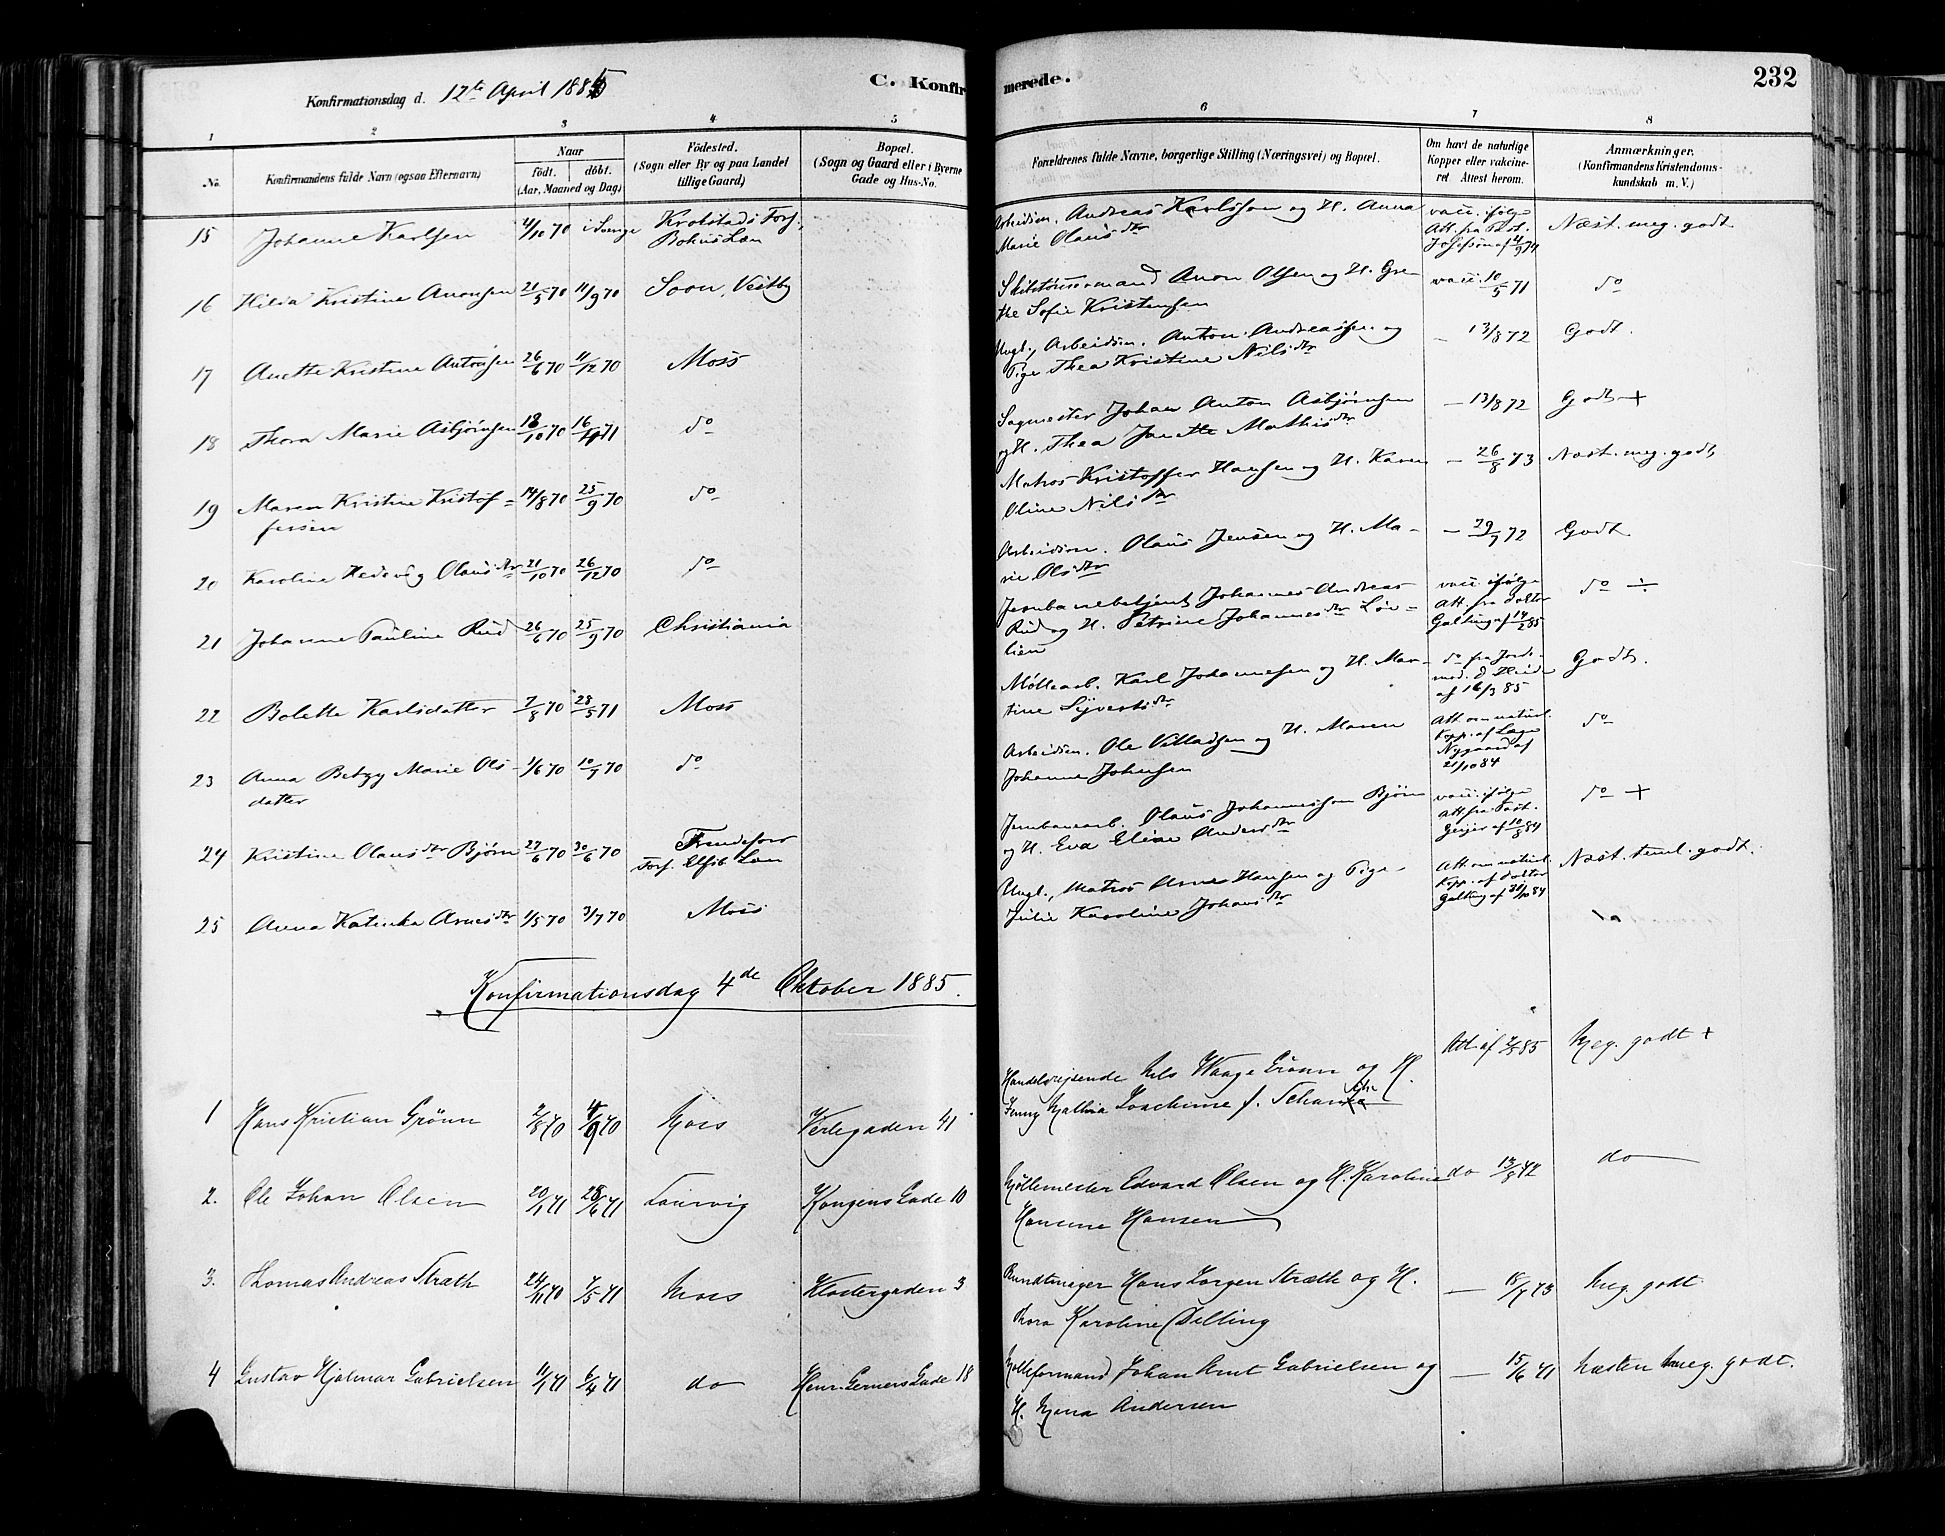 232
Konfirmationsdag d. 12te April 1885
C. Konfirmerede.
1 2 3 4 5 6 7 8
No. Konfirmandens fulde Navn (ogsaa Efternavn)
Naar
födt. döbt.
(Aar, Maaned og Dag)
Födested.
(Sogn eller By og paa Landet
tillige Gaard)
Bopæl.
(Sogn og Gaard eller i Byerne
Gade og Hus-No.
Forældrenes fulde Navne, borgerlige Stilling (Næringsvei) og Bopæl.
Om havt de naturlige
Kopper eller vakcine-
ret. Attest herom.
Anmærkninger.
(Konfirmandens Kristendoms-
kundskab m. V.)
15 Johanne Karlsen 4/10 70 i Sverige Krokstads Fors., Bohus Læn
Arbeidsm. Andreas Karlsson og H. Anna
Marie Olausdtr
vacc. ifølge
Att. fra Past.
Næst. meg. godt
16 Hilda Kristine Aronsen 21/5 70 11/9 70 Soon, Vestby
Aron Olsen og H. Gre-
the Sofie Kristensen
vacc. 10/5 71 do
17 Anette Kristine Antonsen 26/6 70 11/12 70 Moss
Ungk., Arbeidsm. Anton Andreassen og
Pige Thea Kristine Nilsdtr
– 13/8 72 Godt.
18 Thora Marie Asbjørnsen 18/10 70 16/4 71 do
Sagmester Johan Anton Asbjørnsen
og H. Thea Janette Mathisdtr
– 13/8 72 Godt +
19 Maren Kristine Kristof-
fersen 14/8 70 25/9 70 do
Matros Kristoffer Hansen og H. Karen
Oline Nilsdtr
– 26/8 73 Næst. meg. godt
20 Karoline Hedevig Olausdtr 21/10 70 26/12 70 do
Arbeidsm. Olaus Jensen og H. Ma-
rie Olsdtr
– 29/7 72 Godt
21 Johanne Pauline Rud 26/6 70 25/9 70 Christiania
Jernbanebetjent Johannes Andreas
Rud og H. Petrine Johannesdtr Løv-
lien
vacc. ifølge
Att. fra Doktor
Galtung af 14/2 85
do ÷
22 Bolette Karlsdatter 7/8 70 28/5 71 Moss
Møllearb. Karl Johannesen og H. Mar-
tine Syvertsdtr
do fra Jorde-
mod.
af 16/3 85
Godt.
23 Anna Betzy Marie Ols-
datter 1/6 70 10/7 70 do
Arbeidsm. Ole Villadsen og H. Maren
Johanne Johnsen
Att. om naturl.
Kopp. af Læge
Nygaard af
21/10 84
do
24 Kristine Olausdtr Bjørn 27/6 70 30/6 70
Fors. Elfsb. Læn
Jernbanearb. Olaus Johannesson Bjørn
og H. Eva Elina Andersdtr
vacc. ifølge
Att. fra Past.
Geijer af 10/8 84
do +
25 Anna Katinka Arnesdtr 1/5 70 3/7 70 Moss
Ungk., Matros Arne Hansen og Pige
Julie Karoline Johansdtr
Att. om naturl.
Kopp. af Doktor
Galtung af 31/10 84
Næst. teml. godt.
Konfirmationsdag 4de Oktober 1885.
1 Hans Kristian Grönn 2/8 70 4/9 70 Moss Verlegaden 41
Handelsrejsende Nils Waage Grönn og H.
Jenny Mathia Joachime f.
Att. af 2/5 85 Meg. godt +
2. Ole Johan Olsen 20/1 71 28/6 71 Laurvig Kongens Gade 10
Möllemester Edvard Olsen og H. Karoline
Hansine Hansen
do 13/8 72 do
3. Thomas Andreas Stræth 24/11 70 7/5 71 Moss Klostergaden 3
Bundtmager Hans Jörgen Stræth og H.
Thora Karoline Delling
— 18/7 73 Meg. godt
4 Gustav Hjalmar Gabrielsen 11/1 71 6/4 71 do Henr. Gerners Gade 18
Mölleformand Johan Arnt Gabrielsen og
H. Maria Andersen
— 15/6 71 Næsten meg. godt.